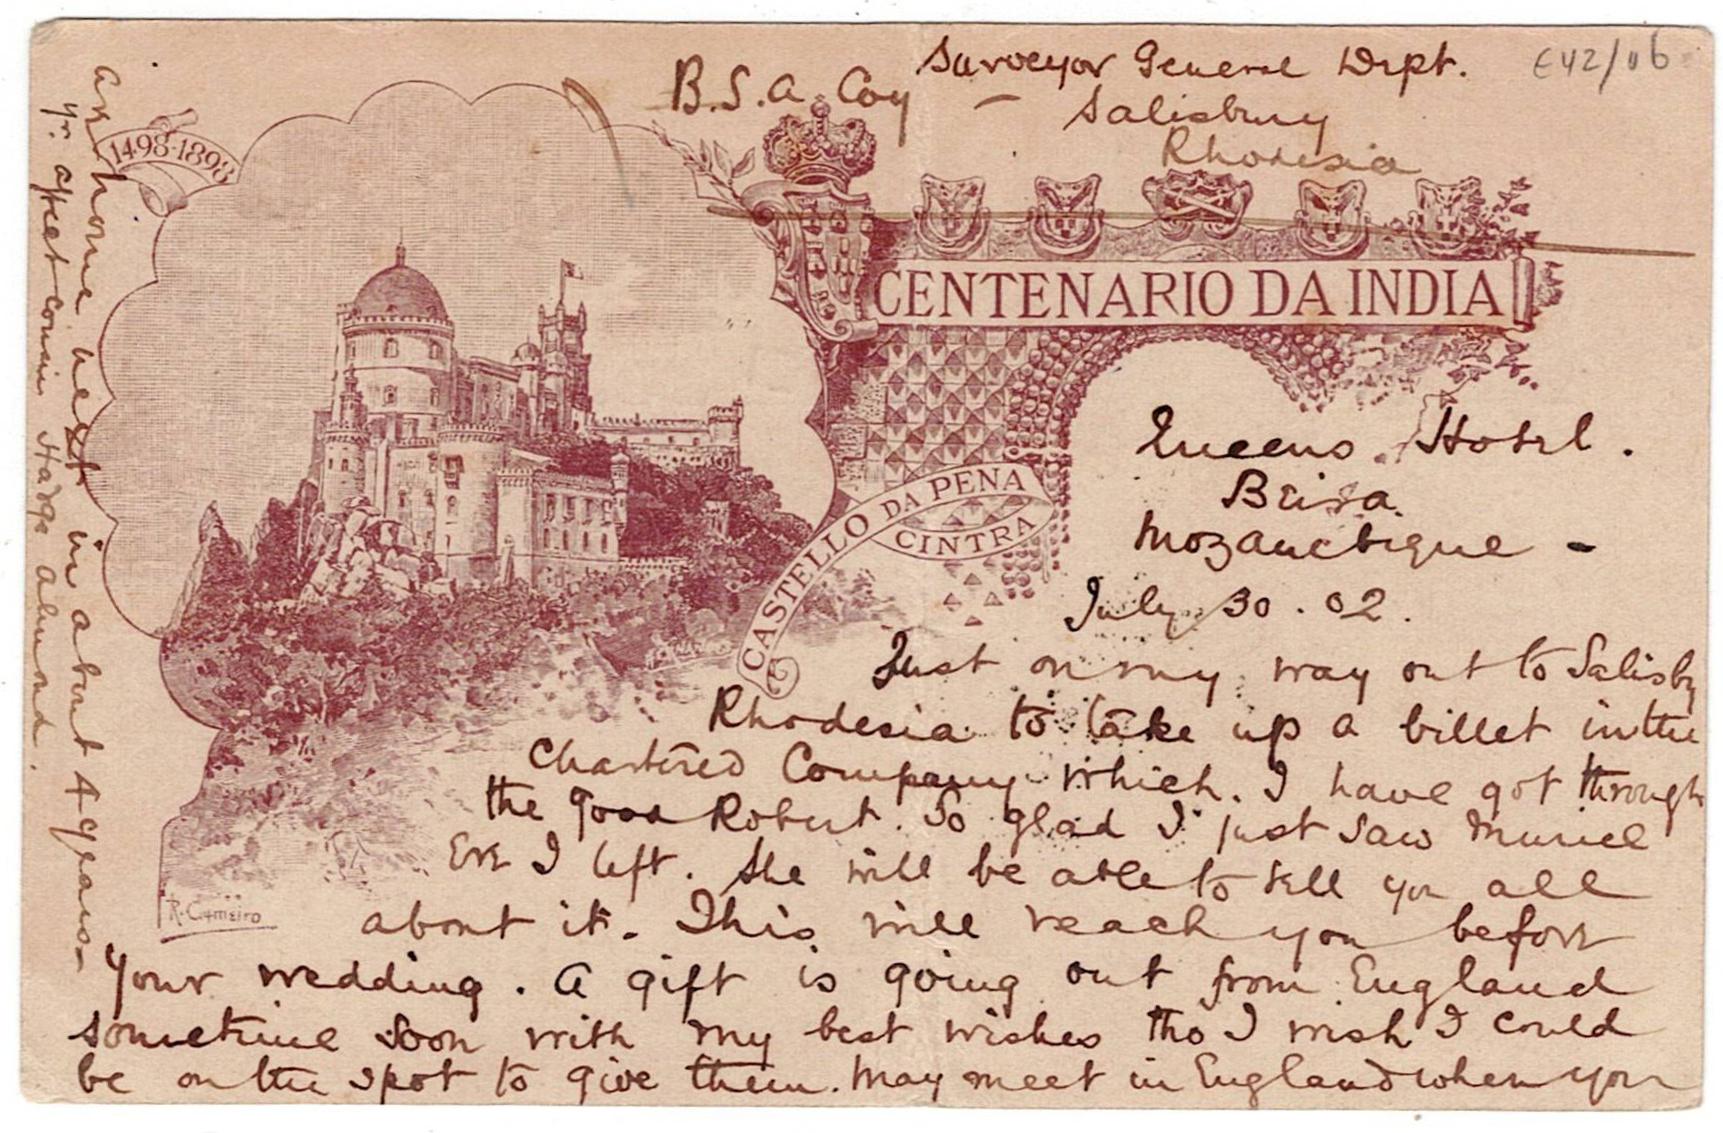 B.S.A. Coy
Surveyor General Dept.
Salisbury
Rhodesia
E42/06
1498-1898
CENTENARIO DA INDIA
CASTELLO DA PENA
CINTRA
R. Cameiro
Queens Hotel.
Beira
Mozambique -
July 30. 02.
Just on my way out to Salisby
Rhodesia to take up a billet in the
Chartered Company which I have got through
the good Robert. So glad I just saw Muriel
Ere I left. She will be able to tell you all
about it. This will reach you before
your wedding. A gift is going out from England
sometime soon with my best wishes tho I wish I could
be on the spot to give them. May meet in England when you
are home next in about 4 years -
yr. affect cousin